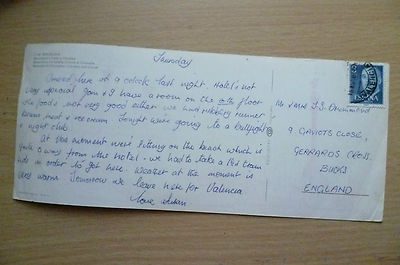 Thursday
Arrived here at 9 o'clock last night. Hotel's not
very special Jan & I have a room on the floor
the food's not very good either we had rubbery runner
beans meat & ice cream. Tonight we're going to a bullfight
& night club.
At the moment we're sitting on the beach which is
quite a way from the hotel - we had to take a
ride in order to get here. Weather at the moment is
very warm. Tomorrow we leave here for Valencia
Love Susan
Mr & Mrs F.S. Drummond
9 GAVIOTS CLOSE,
GERRARDS CROSS,
BUCKS
ENGLAND